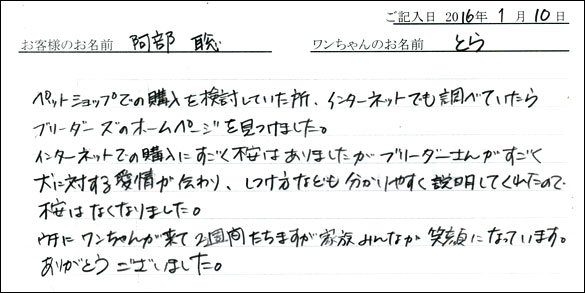 ご記入日 2016年 1月 10日
お客様のお名前 阿部 聡 ワンちゃんのお名前 とら
ペットショップでの購入を検討していた所、インターネットでも調べていたら
ブリーダーズのホームページを見つけました。
インターネットでの購入にすごく不安はありましたがブリーダーさんがすごく
犬に対する愛情が伝わり、しつけ方なども分かりやすく説明してくれたので
不安はなくなりました。
家にワンちゃんが来て2週間たちますが家族みんなが笑顔になっています。
ありがとうございました。